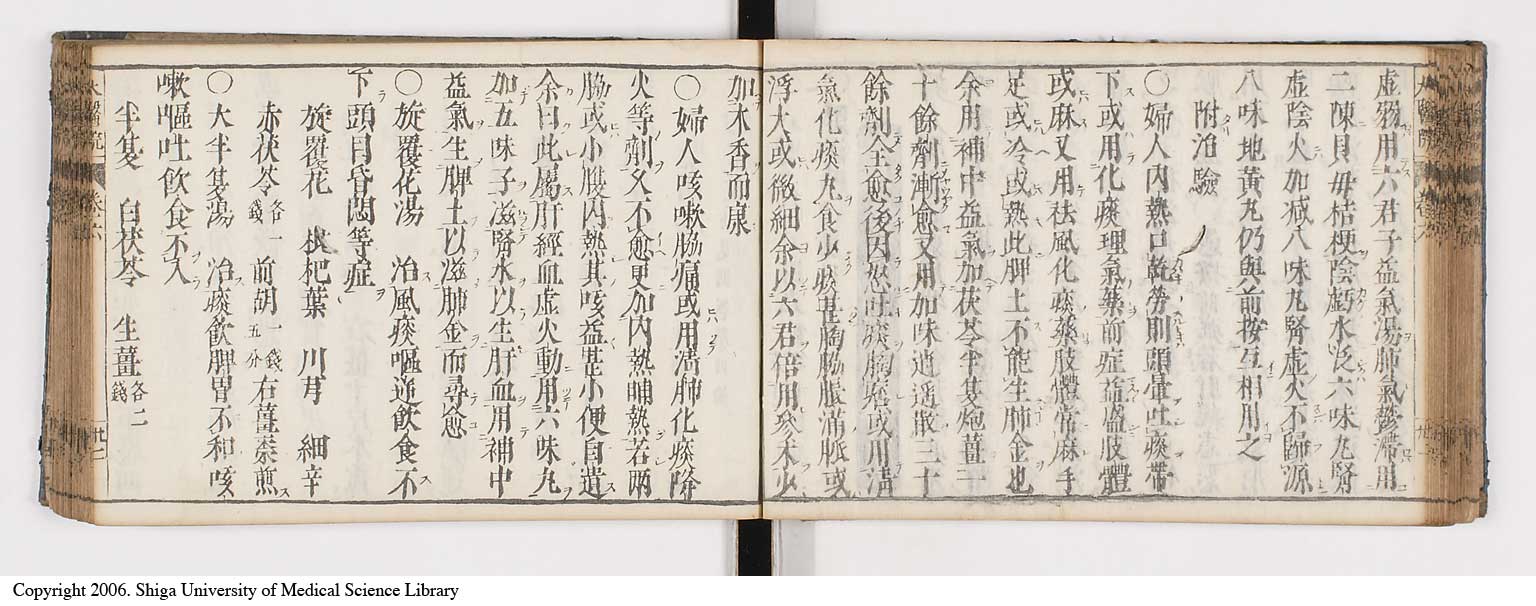 虛弱用六君子益氣湯肺氣鬱滯用
二陳貝母桔梗陰虧水泛六味丸腎
虛陰火加減八味丸腎虛火不歸源
八味地黃丸仍與前按互相用之
附治驗
○婦人內熱口乾勞則頭暈吐痰帶
下或用化痰理氣藥前症益盛肢體
或麻又用祛風化痰藥肢體常麻手
足或冷或熱此脾土不能生肺金也
余用補中益氣加茯苓半夏炮薑二
十餘劑漸愈又用加味逍遙散三十
餘劑全愈後因怒吐痰胸痞或用清
氣化痰丸食少痰甚胸脇脹滿脈或
浮大或微細余以六君倍用參朮少
加木香而康
○婦人咳嗽脇痛或用清肺化痰降
火等劑久不愈更加內熱晡熱若兩
脇或小腹內熱其咳益甚小便自遺
余曰此屬肝經血虛火動用六味丸
加五味子滋腎水以生肝血用補中
益氣生脾土以滋肺金而尋愈
○旋覆花湯 治風痰嘔逆飲食不
下頭目昏悶等症
旋覆花 枇杷葉 川芎 細辛
赤茯苓各一錢 前胡一錢五分 右薑棗煎
○大半夏湯 治痰飲脾胃不和咳
嗽嘔吐飲食不入
半夏 白茯苓 生薑各二錢
卷六
廿二
Copyright 2006. Shiga University of Medical Science Library